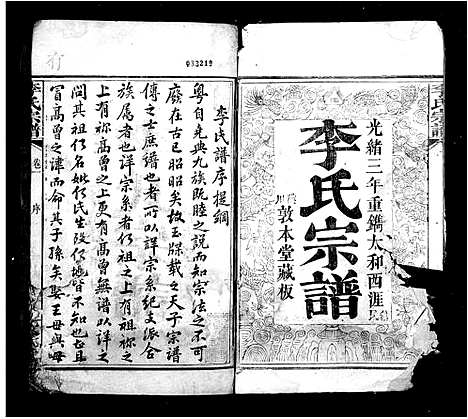 光緒三年重鐫太和西涯
李氏宗譜
敦本堂藏板
李氏譜序提綱
粵自堯典九族既睦之說而知宗法之不可
廢在古已昭昭矣故玉牒載之天子宗譜
傳之士庶譜也者所以詳宗系紀支派合
族屬者也詳宗系者何祖之上有祖祢之
上有祢高曾之上有高曾無譜以詳之
其祖何名妣何氏生何
冒高曾之諱而命其子孫矣娶王母與母
李氏宗譜
卷
序
093219